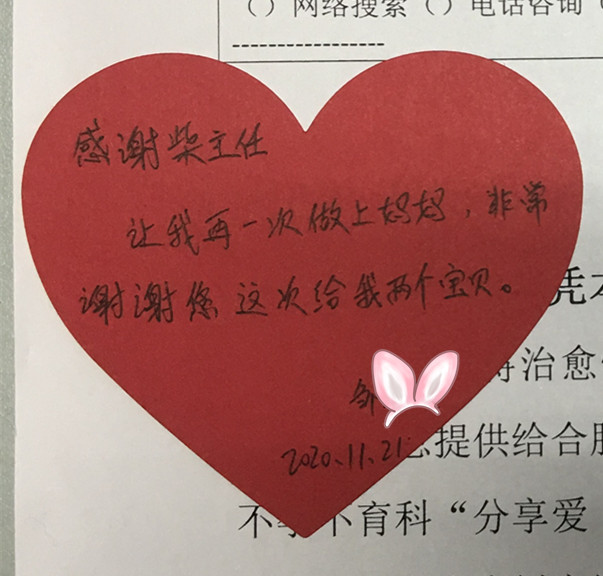 （）网络搜索（）电话咨询（
感谢柴主任
让我再一次做上妈妈，非常
谢谢您 这次给我两个宝贝。
凭本
治愈
邹
2020.11.21
提供给合肥
不孕不育科“分享爱